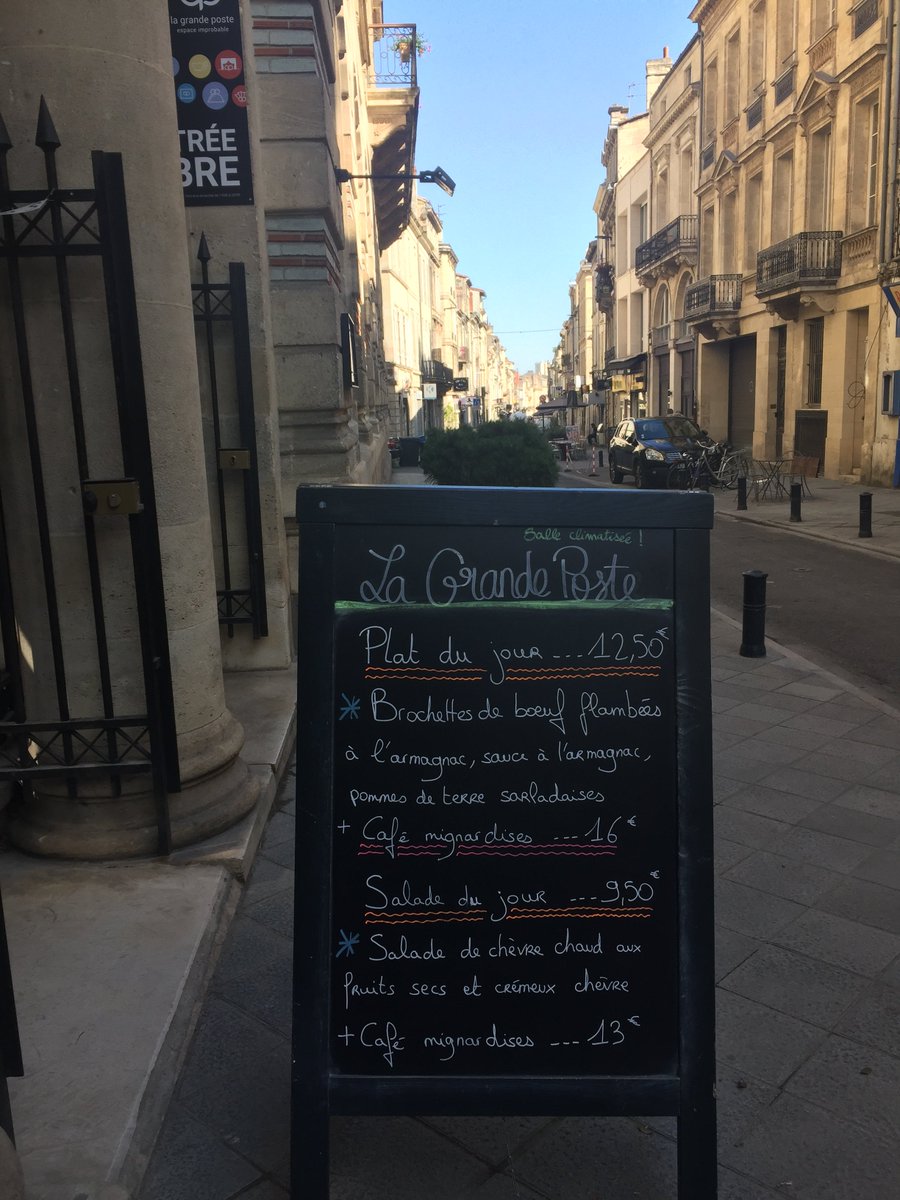 la grande poste
espace improbable
TRÉE
BRE
Salle climatisée !
La Grande Poste
Plat du jour --- 12,50€
* Brochettes de boeuf flambées
à l'armagnac, sauce à l'armagnac,
pommes de terre sarladaises
+ Café mignardises --- 16€
Salade du jour --- 9,50€
* Salade de chèvre chaud aux
fruits secs et crémeux chèvre
+ Café mignardises --- 13€